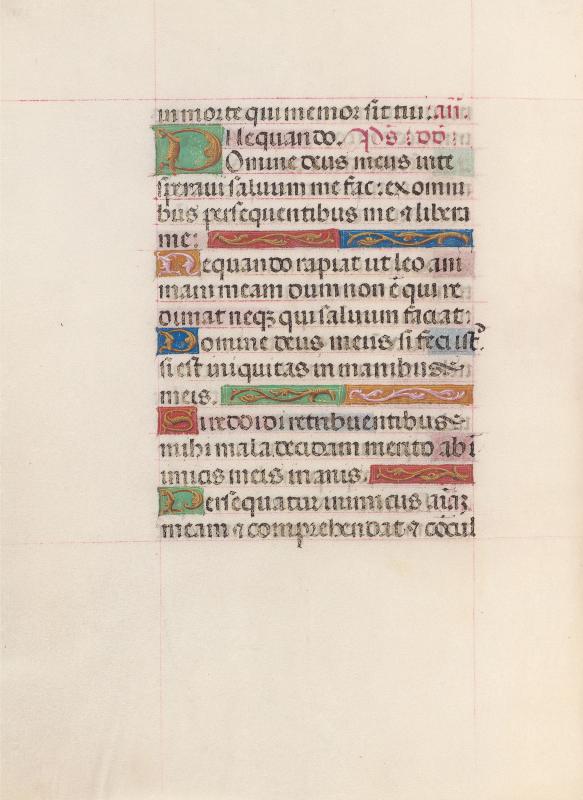 in morte qui memor sit tui: añ.
Nequando. Ps: dd
Domine deus meus in te
speraui saluum me fac: ex omni
bus persequentibus me ⁊ libera
me:
Nequando rapiat ut leo ani
mam meam dum non ē qui re
dimat neqꝫ qui saluum faciat:
Domine deus meus si feci ist̄
si est iniquitas in manibus
meis.
Si reddidi retribuentibus
mihi mala decidam merito ab i
nimicis meis inanis.
Persequatur inimicus aīaꝫ
meam ⁊ comprehendat ⁊ cōcul